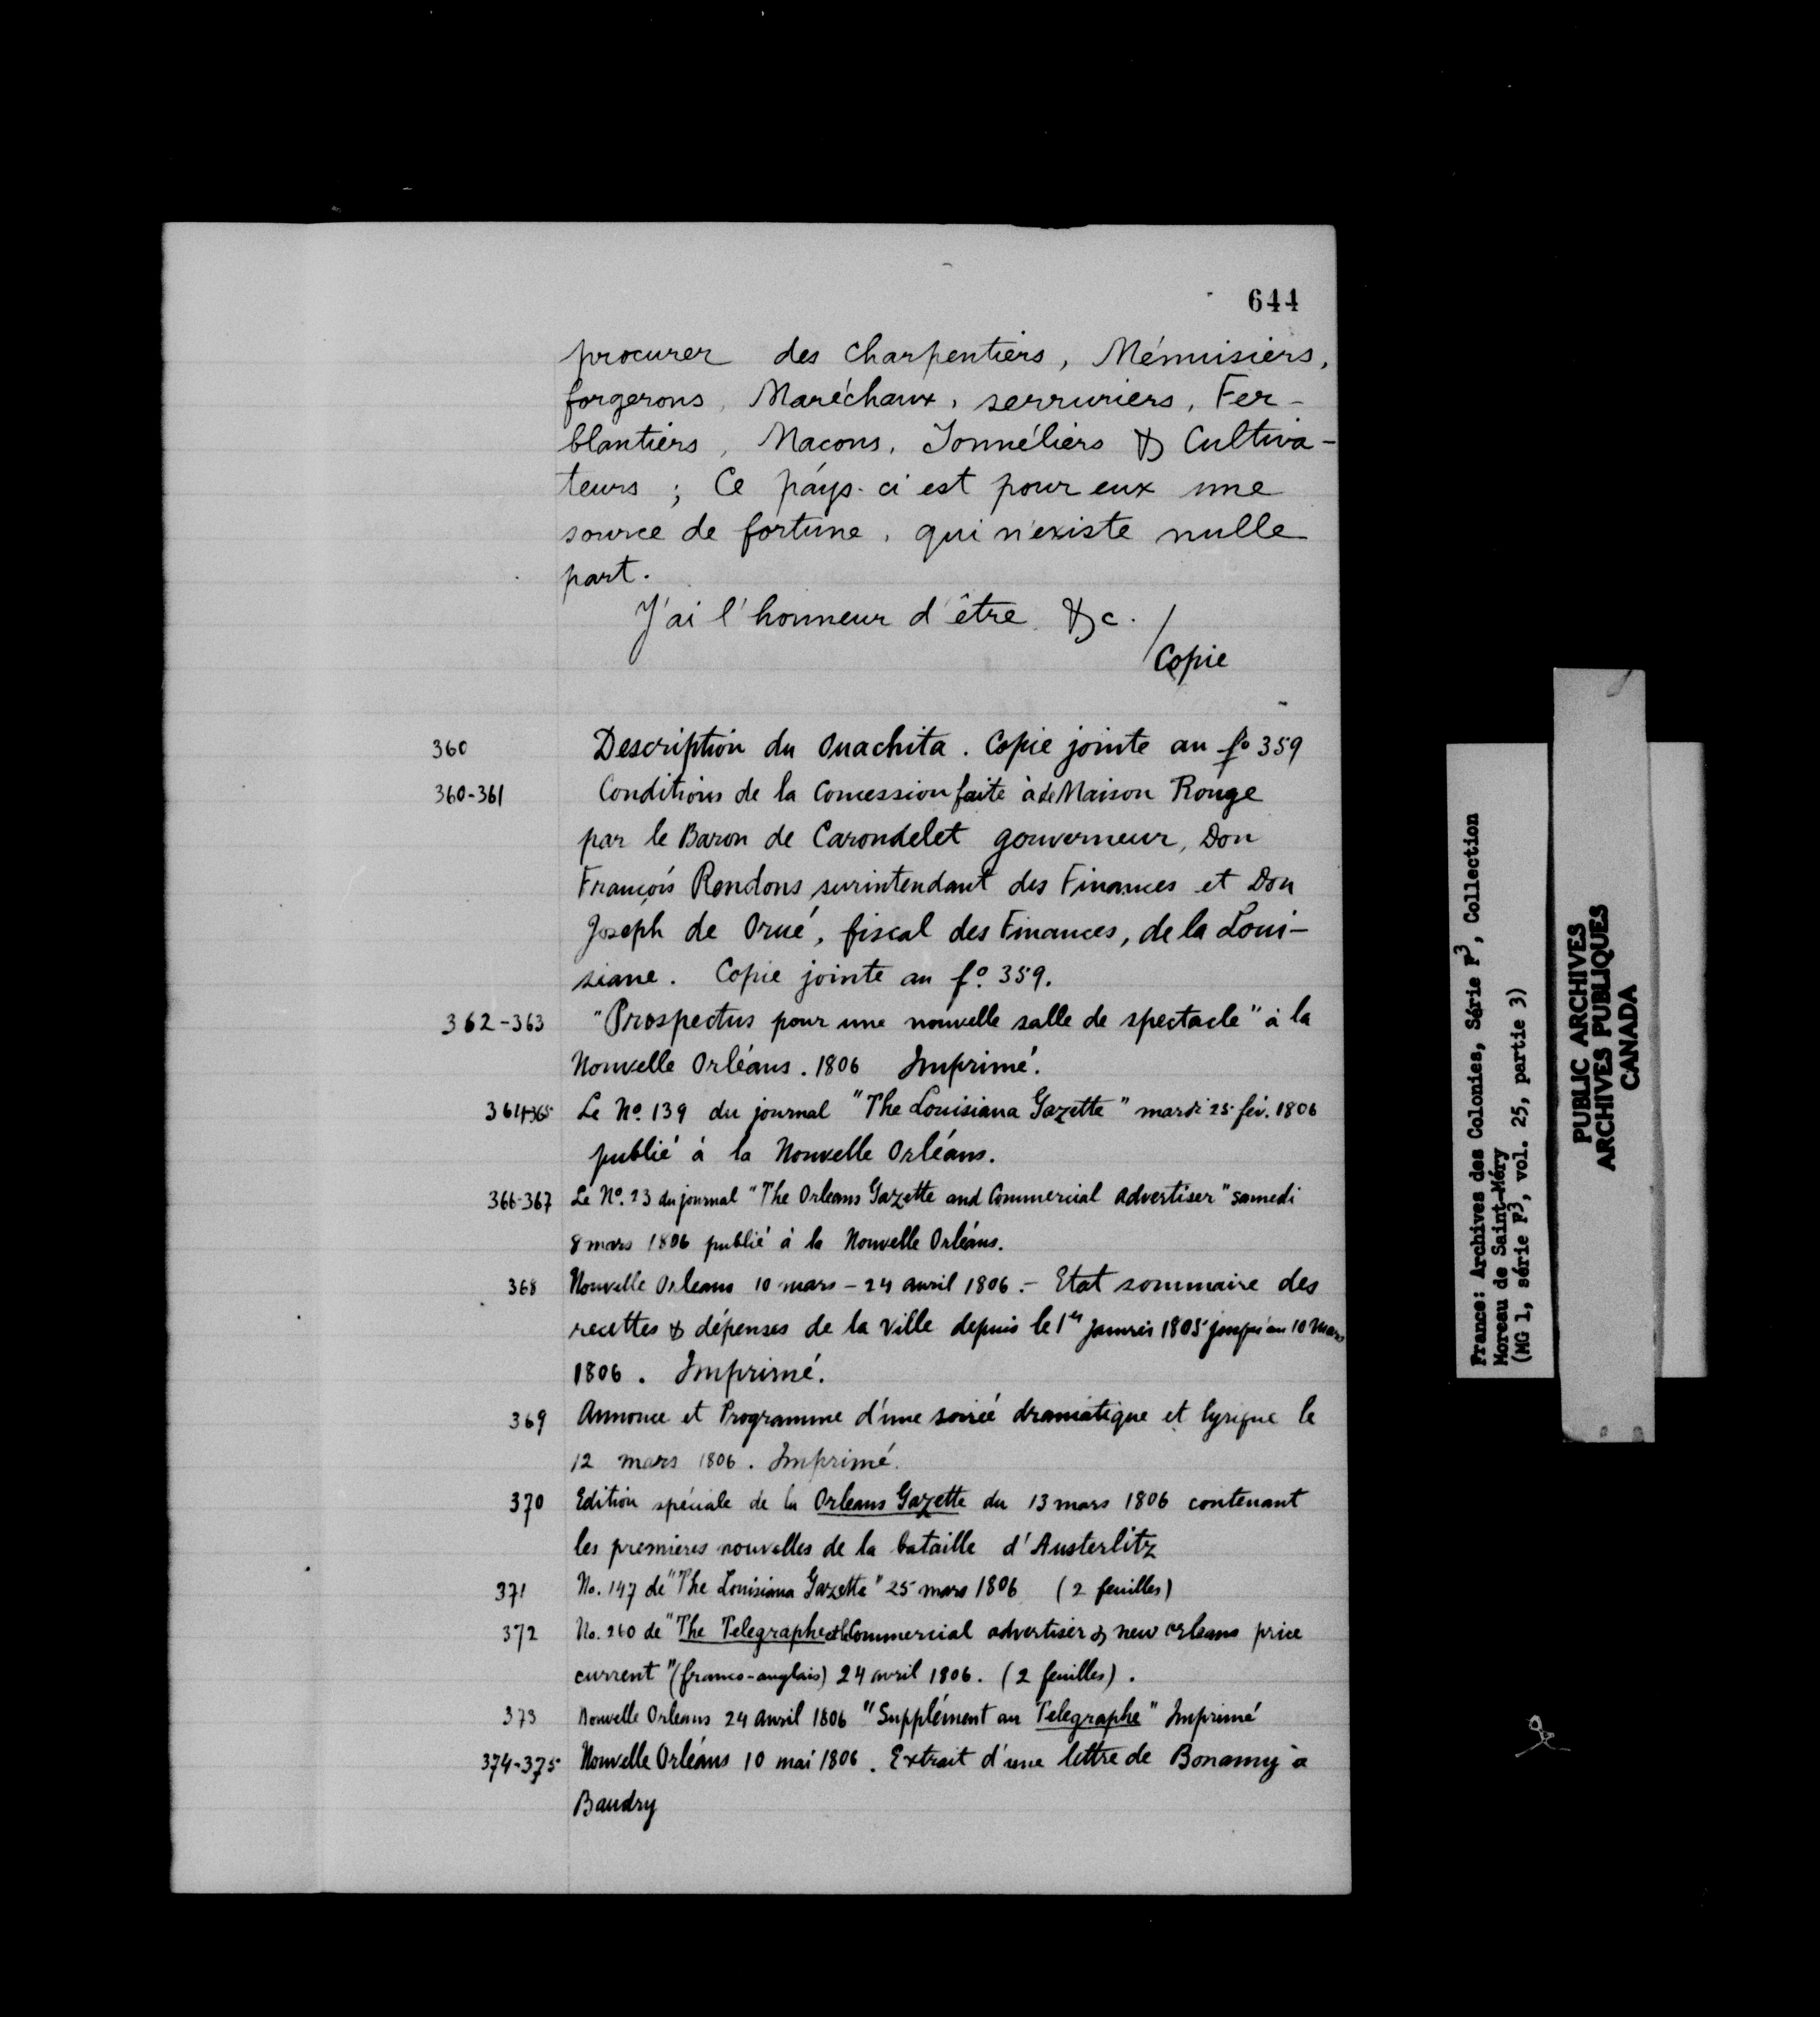 644
procurer des Charpentiers, Ménuisiers,
forgerons, Maréchaux, serruriers, Fer-
blantiers, Macons, Tonnéliers & Cultiva-
teurs ; Ce páys-ci est pour eux une
source de fortune, qui n'existe nulle
part.
J'ai l'honneur d'être &c.
Copie
360 Description du Ouachita. Copie jointe au fo 359
360-361 Conditions de la Concession faite à de Maison Rouge
par le Baron de Carondelet gouverneur, Don
François Rendons surintendant des Finances et Don
Joseph de Orué, fiscal des Finances, de la Loui-
siane. Copie jointe au fo. 359.
362-363 "Prospectus pour une nouvelle salle de spectacle" à la
Nouvelle Orléans. 1806 Imprimé.
364-365 Le No. 139 du journal "The Louisiana Gazette" mardi 25 fév. 1806
publié à la Nouvelle Orléans.
366-367 Le No. 23 du journal "The Orleans Gazette and Commercial Advertiser" samedi
8 mars 1806 publié à la Nouvelle Orléans.
368 Nouvelle Orleans 10 mars - 24 avril 1806. - Etat sommaire des
recettes & dépenses de la Ville depuis le 1er Janvier 1805 jusqu'au 10 Mars
1806. Imprimé.
369 Annonce et Programme d'une soirée dramatique et lyrique le
12 mars 1806. Imprimé.
370 Edition spéciale de la Orleans Gazette du 13 mars 1806 contenant
les premieres nouvelles de la bataille d'Austerlitz
371 No. 147 de "The Louisiana Gazette" 25 mars 1806 (2 feuilles)
372 No. 260 de "The Telegraphe et le Commercial advertiser & new orleans price
current" (franco-anglais) 24 avril 1806. (2 feuilles).
373 Nouvelle Orleans 24 avril 1806 "Supplément au Telegraphe" Imprimé
374-375 Nouvelle Orléans 10 mai 1806. Extrait d'une lettre de Bonamy à
Baudry
France: Archives des Colonies, Série F3, Collection
Moreau de Saint-Méry
(MG 1, série F3, vol. 25, partie 3)
PUBLIC ARCHIVES
ARCHIVES PUBLIQUES
CANADA